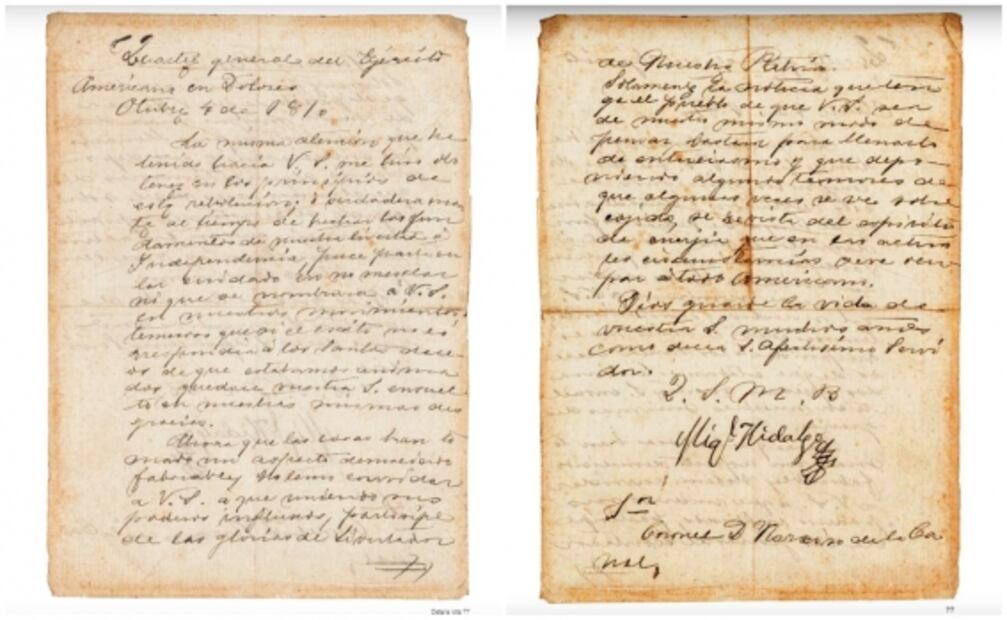 Cuartel general del Ejército
Americano en Dolores
Otubre 4 de 1810
La misma atención que he
tenido hacia V. S. me hiso ds
tener en los prinsipios de
esta rebolución; i verdaderamen
te al tiempo de hechar los fun
damentos de nuestra livertad é
Independencia puce particu
lar cuidado en no mesclar
ni que se nombrara á V. S.
en nuestros movimientos,
temeroso que si el exito no co
rrespondia á los santos deceo
os de que estabamos anima
dos quedace vuestra S. envuel
to en nuestras mismas des
gracias.
Ahora que las cosas han to
mado un aspecto demaciado
faborable, no temo convidar
á V. S. a que uniendo sus
poderoso influxo, participe
de las glorias de Livertador
Detalle lote 77
de Nuestra Patria.
Solamente la noticia que tenga
el pueblo de que V. S. sea
de nuestro mismo modo de
pensar bastará para llenarlo
de entuciasmo y que depo
niendo algunos temores de
que algunas veces se ve sobre
cogido, se revista del espiritu
de energia que en las actua
les circunstancias deve ocu
par á todo Americano.
Dios guarde la vida de
vuestra S. muchos años
como decea S. Afectisimo Servi
dor.
Q. S. M. B
Migl. Hidalgo
Sor
Coronel D. Narciso de la Ca
nal,
77